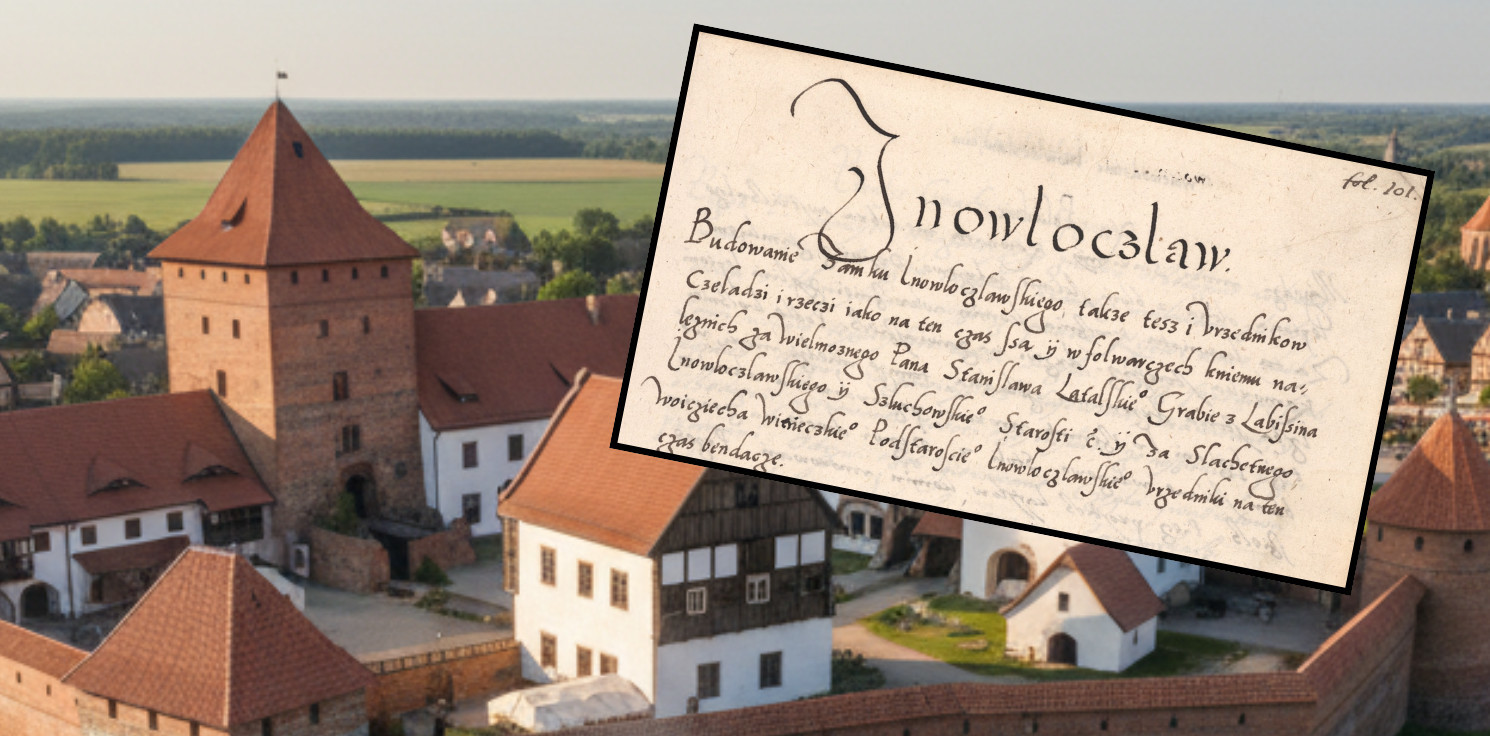 fol. 101.
Inowloczław.
Budowanie Zamku Inowloczlawſkiego, takze tesz i Vrzednikow
Czeladzi i rzeczi iako na ten czas ſsą ÿ w folwarczech kniemu na⸗
leznich za Wielmoznego Pana Staniſlawa Latalſkieº Grabie z Labiſsina
Inowloczlawſkiego ÿ Szluchowſkieº Staroſti ē. ÿ Za Slachetnego
Woiciecha Podſtaroſcieº Inowloczlawſkieº Vrzedniki na ten
czas bendacze.